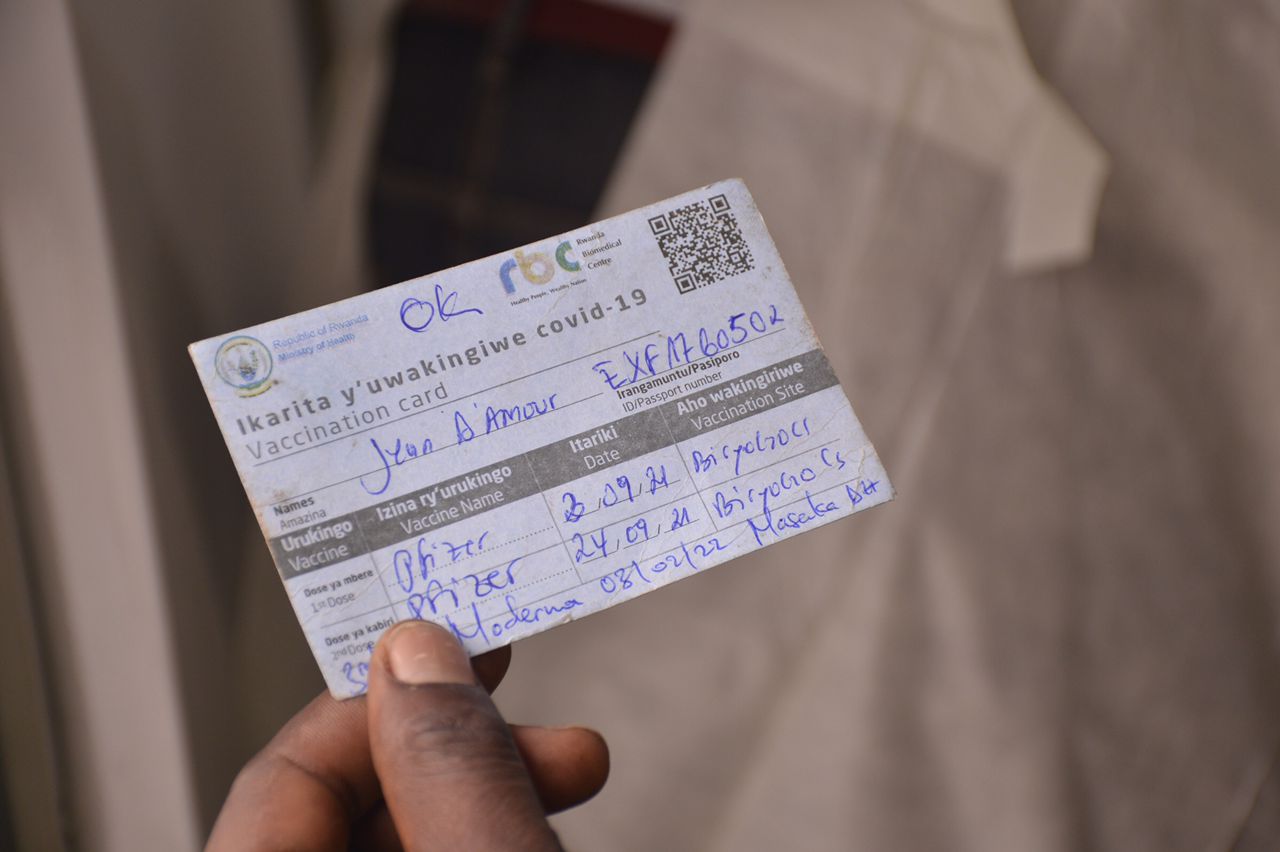 Republic of Rwanda
Ministry of Health
OK
rbc Rwanda Biomedical Centre
Healthy People, Wealthy Nation
Ikarita y'uwakingiwe covid-19
Vaccination card
Names Jean D'AMOUR
Amazina
EXF1760502
Irangamuntu/Pasiporo
ID/Passport number
Urukingo Izina ry'urukingo Itariki Aho wakingiriwe
Vaccine Vaccine Name Date Vaccination Site
Dose ya mbere
1st Dose Pfizer 09.21
Dose ya kabiri
2nd Dose Pfizer 24.09.21
Moderna 03/02/22 Masaka DH